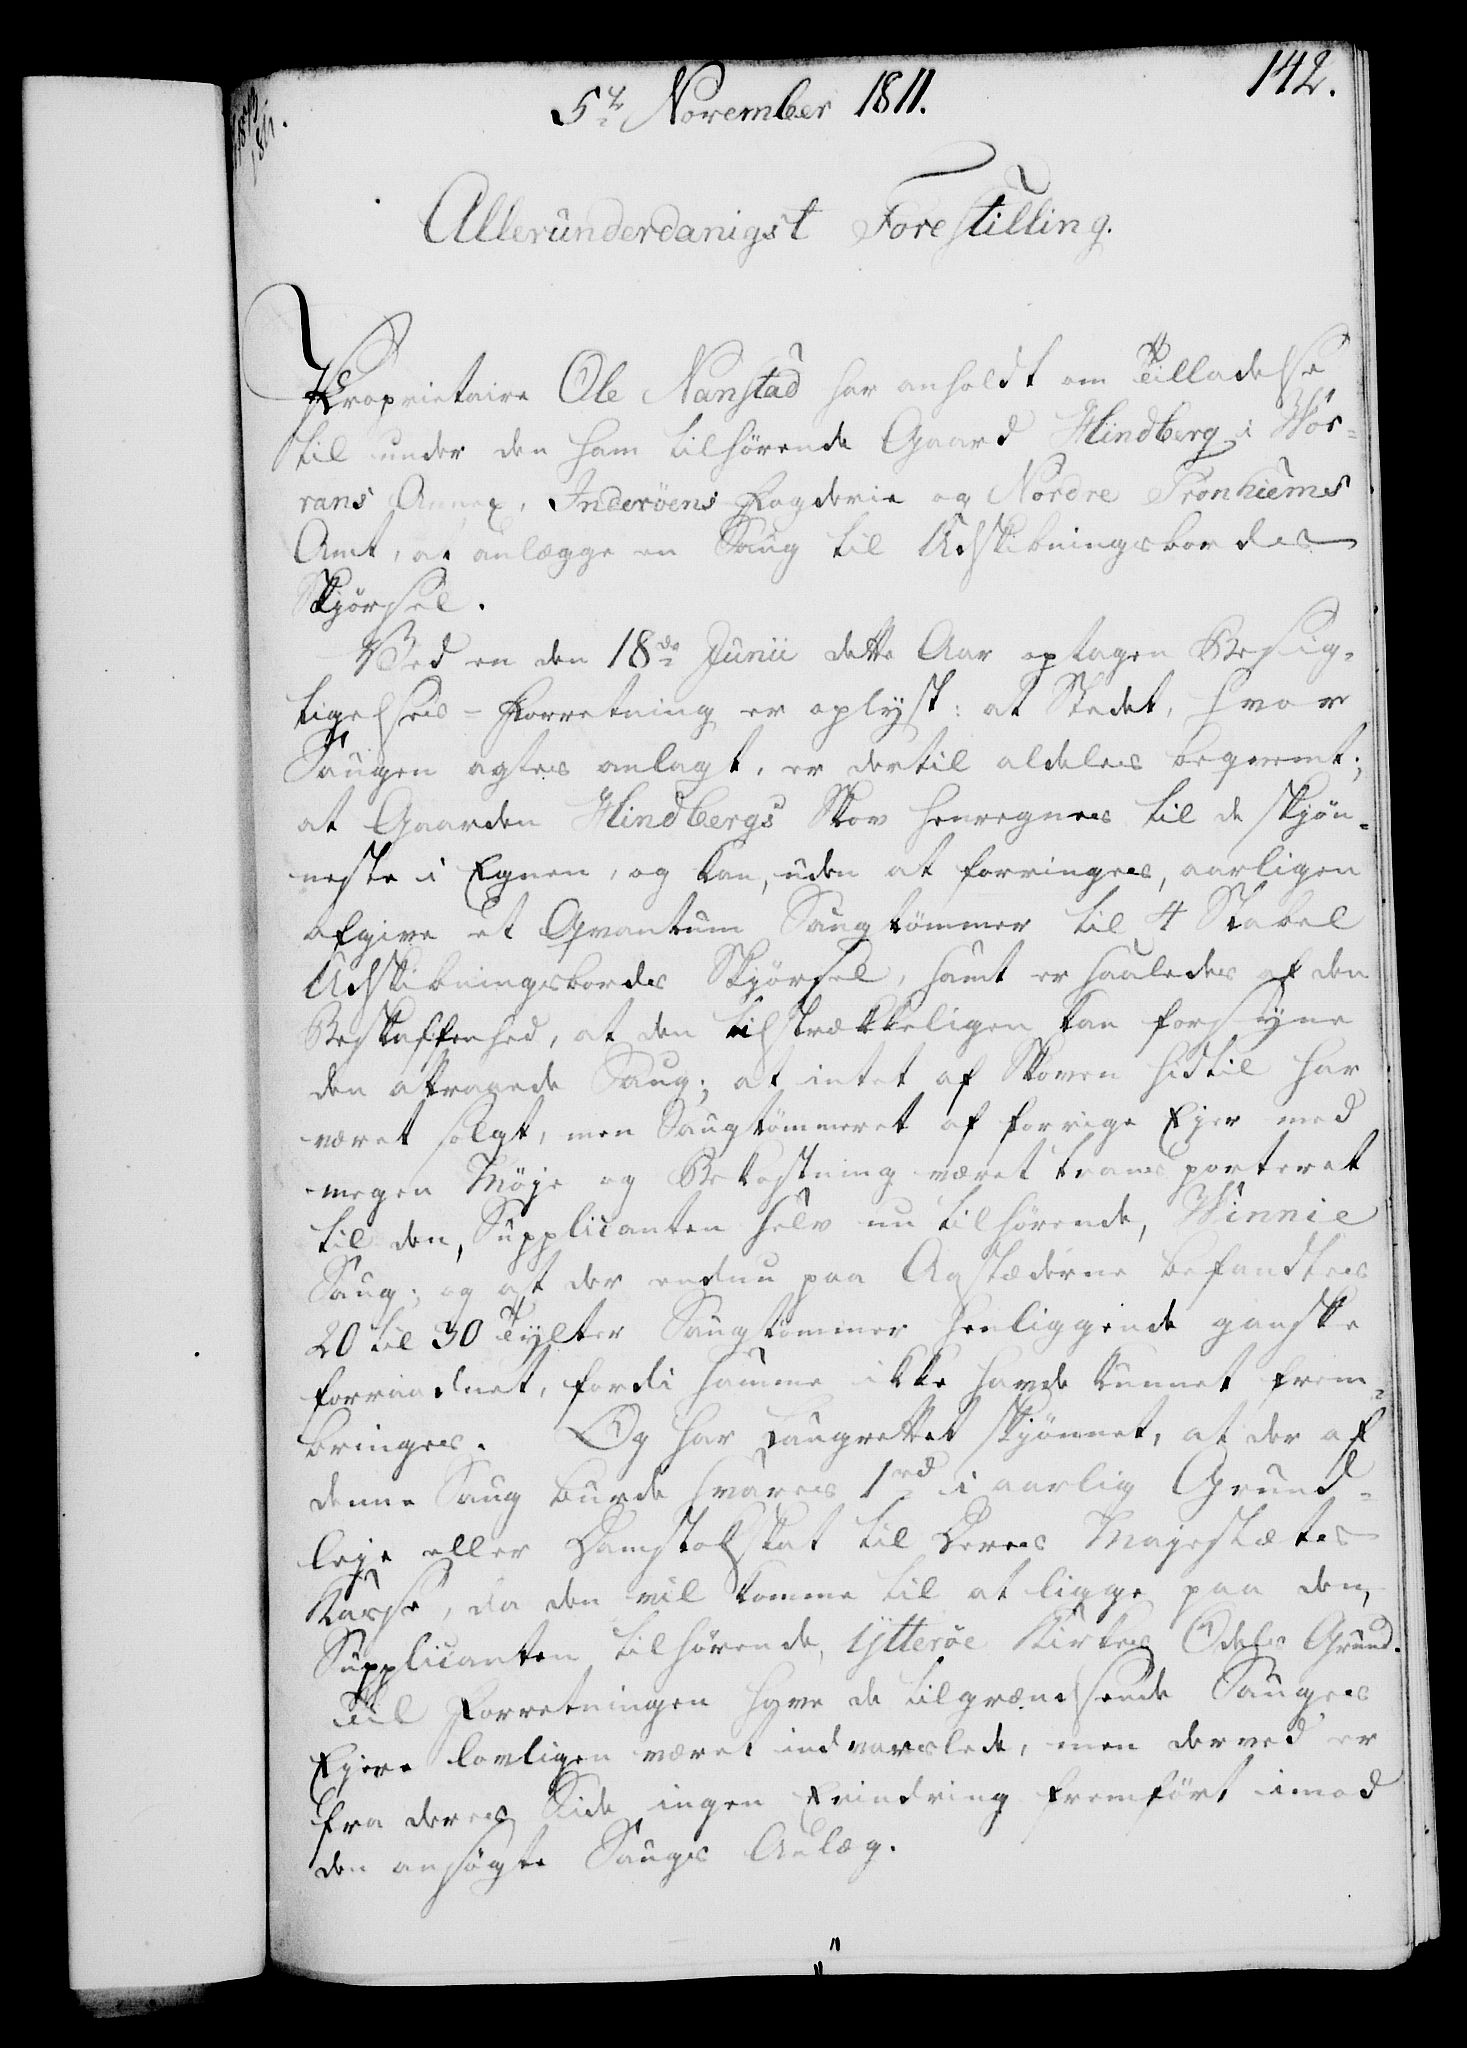 142.
5te November 1811.
Allerunderdanigst Forestilling.
Proprietaire Ole Nanstad har anholdt om Tilladelse
til under den ham tilhørende Gaard Hindberg i Wør-
rans Annex, Inderøens Fogderie og Nordre Tronhiems
Amt, at anlægge en Saug til Udskibningsbordes
Skjørsel.
Ved en den 18de Junii dette Aar optagen Besig-
tigelses-Forretning er oplyst: at Stedet, hvor
Saugen agtes anlagt, er dertil aldeles beqvemt;
at Gaarden Hindbergs Skov henregnes til de skjøn-
neste i Egnen, og kan, uden at forringes, aarligen
afgive et Qvantum Saugtømmer til 4 Stabel
Udskibningsbordes Skjørsel, samt er saaledes af den
Beskaffenhed, at den tilstrækkeligen kan forsyne
den attraaede Saug; at intet af Skoven hidtil har
været solgt, men Saugtømmeret af forrige Ejer med
megen Møje og Bekostning været transporteret
til den, Supplicanten selv nu tilhørende, Winnie
Saug; og at der endnu paa Aastæderne befandtes
20 til 30 Tylter Saugtømmer henliggende ganske
forraadnet, fordi samme ikke havde kunnet frem-
bringes. Og har Laugrettet skjønnet, at der af
denne Saug burde svares 1 rd i aarlig Grund-
leje eller Damstolskat til Deres Majestæts
Kasse, da den vil komme til at ligge paa den,
Supplicanten tilhørende, Ytterøe Kirkes Odels Grund.
Til Forretningen have de tilgrændsende Sauges
Ejere lovligen været indvarslede, men derved er
fra deres Side ingen Erindring fremført imod
den ansøgte Saugs Anlæg.